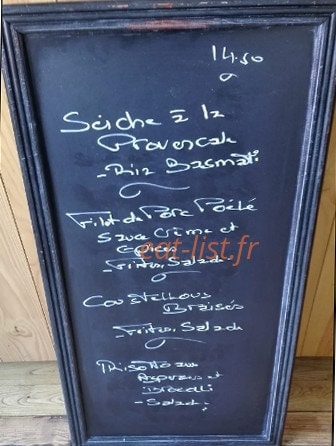 14.50
Seiche à la
Provencale
- Riz Basmati
Filet de Porc Poêlé
Sauce Crème et
Epices
- Frites, Salade
eat-list.fr
Coustellous
Braisés
- Frites, Salade
Risotto aux
Asperges et
Brocoli
- Salade